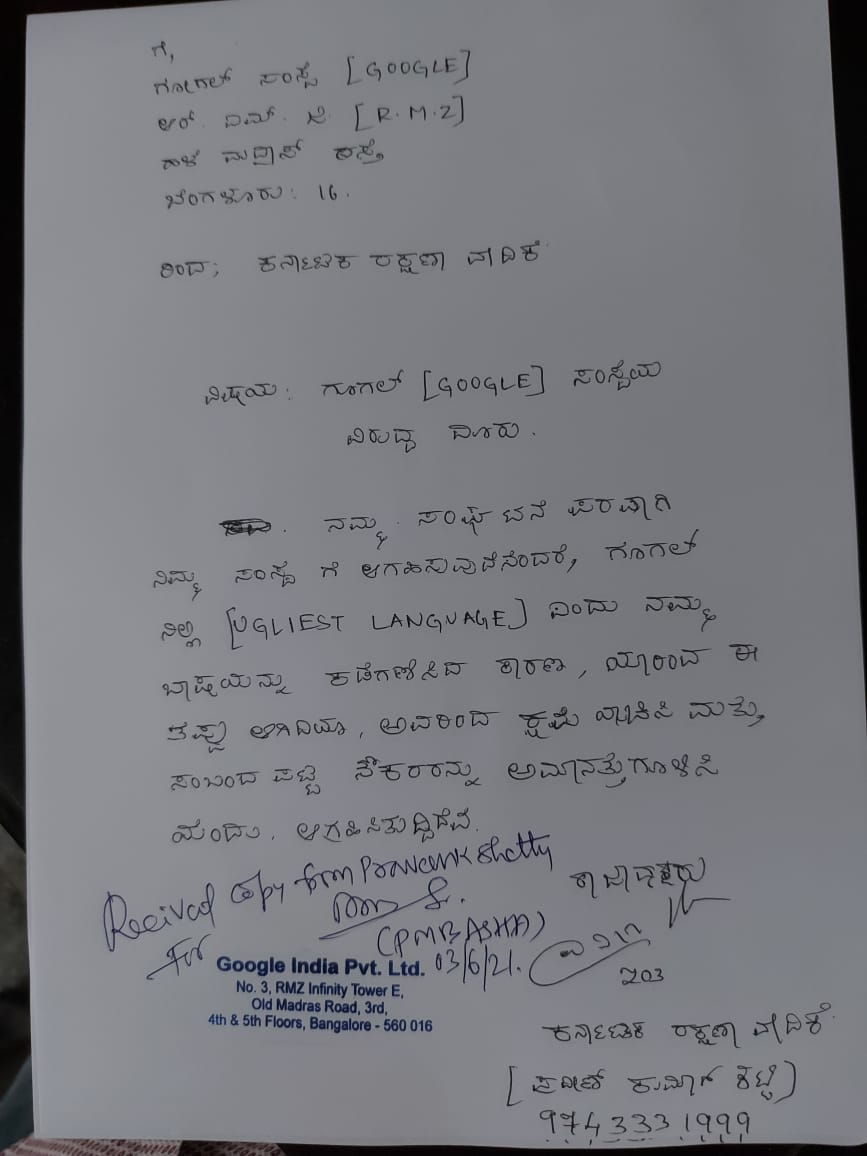 ಗೆ,
ಗೋಗಲ್ ಸಂಸ್ಥೆ [GOOGLE]
ಆರ್. ಎಮ್. ಜೆ. [R.M.Z]
ಹಳೆ ಮದ್ರಾಸ್ ರಸ್ತೆ
ಬೆಂಗಳೂರು: 16.
ರಿಂದ; ಕರ್ನಾಟಕ ರಕ್ಷಣಾ ವೇದಿಕೆ
ವಿಷಯ: ಗೂಗಲ್ [GOOGLE] ಸಂಸ್ಥೆಯ
ವಿರುದ್ಧ ದೂರು.
ನಮ್ಮ ಸಂಘಟನೆ ಪರವಾಗಿ
ನಿಮ್ಮ ಸಂಸ್ಥೆ ಗೆ ಆಗಹಿಸುವುದೆನೆಂದರೆ, ಗೂಗಲ್
ನಲ್ಲಿ [UGLIEST LANGUAGE] ಎಂದು ನಮ್ಮ
ಬಾಷೆಯನ್ನು ಕಡೆಗಣಿಸಿದ ಕಾರಣ, ಯಾರಿಂದ ಈ
ತಪ್ಪು ಆಗಿದೆಯೊ, ಅವರಿಂದ ಕ್ಷಮೆ ಯಾಚಿಸಿ ಮತ್ತು
ಸಂಬಂದ ಪಟ್ಟ ನೌಕರರನ್ನು ಅಮಾನತ್ತುಗೂಳಿಸಿ
ಯೆಂದು. ಆಗ್ರಹಿಸಿತುದ್ದಿದೇವೆ.
Recived Copy from Praveenk Shetty
(PMBASHA)
For Google India Pvt. Ltd. 03/6/21.
No. 3, RMZ Infinity Tower E,
Old Madras Road, 3rd,
4th & 5th Floors, Bangalore - 560 016
ರಾಜಾಧ್ಯಕ್ಷರು
ಕರ್ನಾಟಕ ರಕ್ಷಣಾ ವೇದಿಕೆ
[ಪ್ರವೀಣ್ ಕುಮಾರ್ ಶೆಟ್ಟಿ]
9743331999